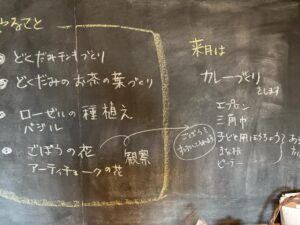 やること
どくだみチンキづくり
どくだみのお茶の葉づくり
ローゼルの種植え
バジル
ごぼうの花
アーティチョークの花
観察
ごぼうも
来月は
カレーづくり
をします
エプロン
三角巾
子ども用ほうちょう
まな板
ピーラー